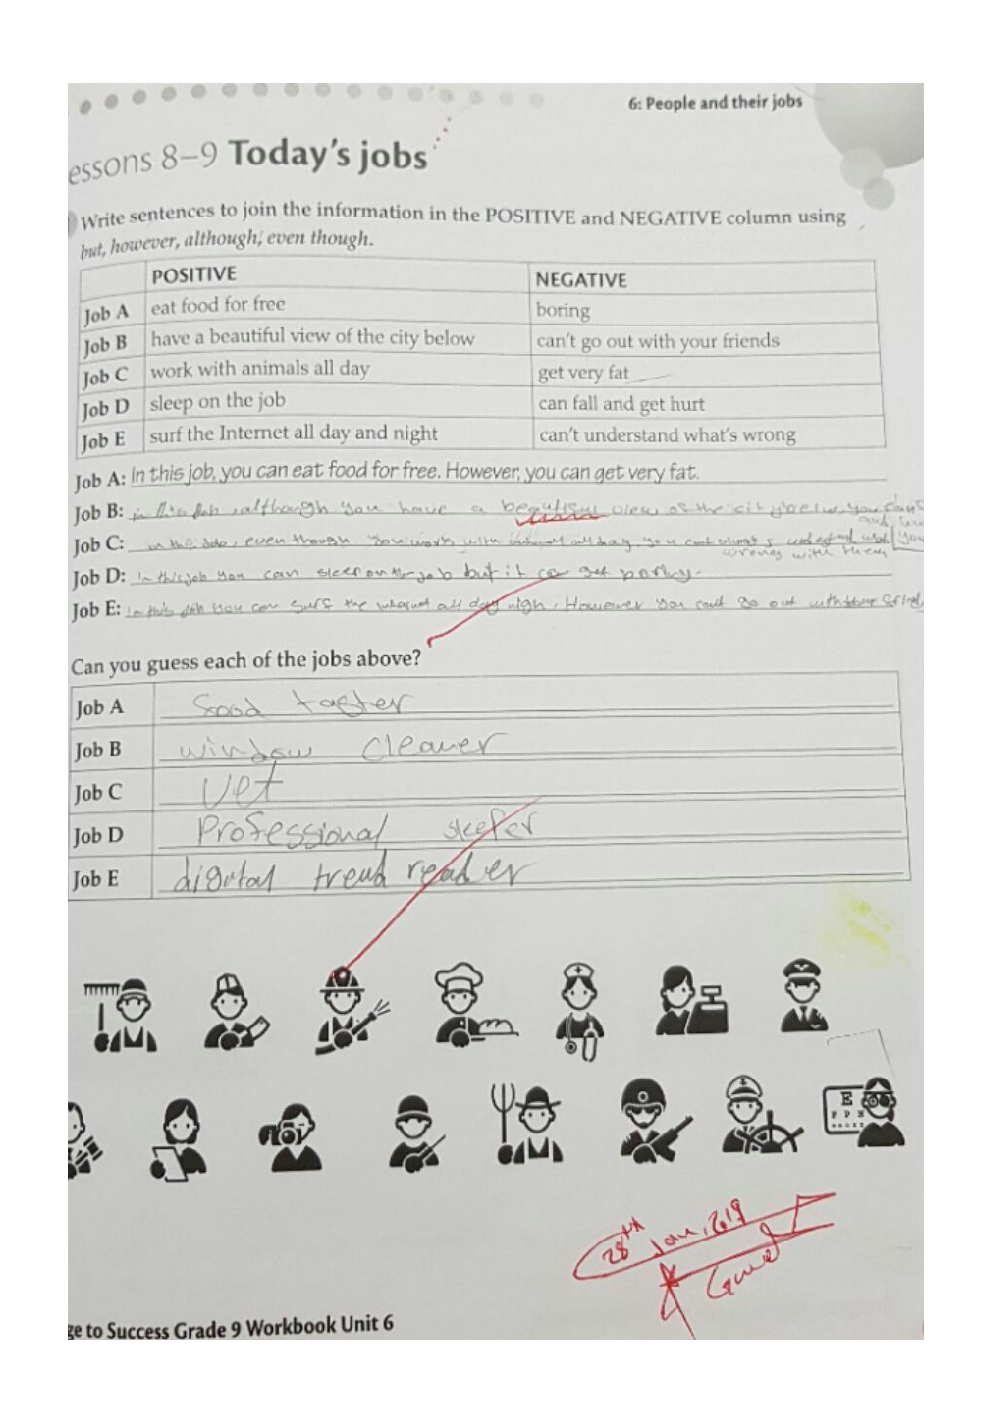 6: People and their jobs
essons 8–9 Today's jobs
Write sentences to join the information in the POSITIVE and NEGATIVE column using
but, however, although, even though.
POSITIVE NEGATIVE
Job A eat food for free boring
Job B have a beautiful view of the city below can't go out with your friends
Job C work with animals all day get very fat
Job D sleep on the job can fall and get hurt
Job E surf the Internet all day and night can't understand what's wrong
Job A: In this job, you can eat food for free. However, you can get very fat.
Job B: in this job, although you have a beautiful view of the city below, you can
Job C: in this job, even though you work with all day, you cant
wrong with them
Job D: In this job you can sleep on the job but it can get boring.
Job E: In this job you can surf the all day nigh, However you cant go out with
Can you guess each of the jobs above?
Job A food taster
Job B window cleaner
Job C Vet
Job D Professional sleefer
Job E digital trend reader
E
F P N
28th Jan, 2019
Good
ge to Success Grade 9 Workbook Unit 6